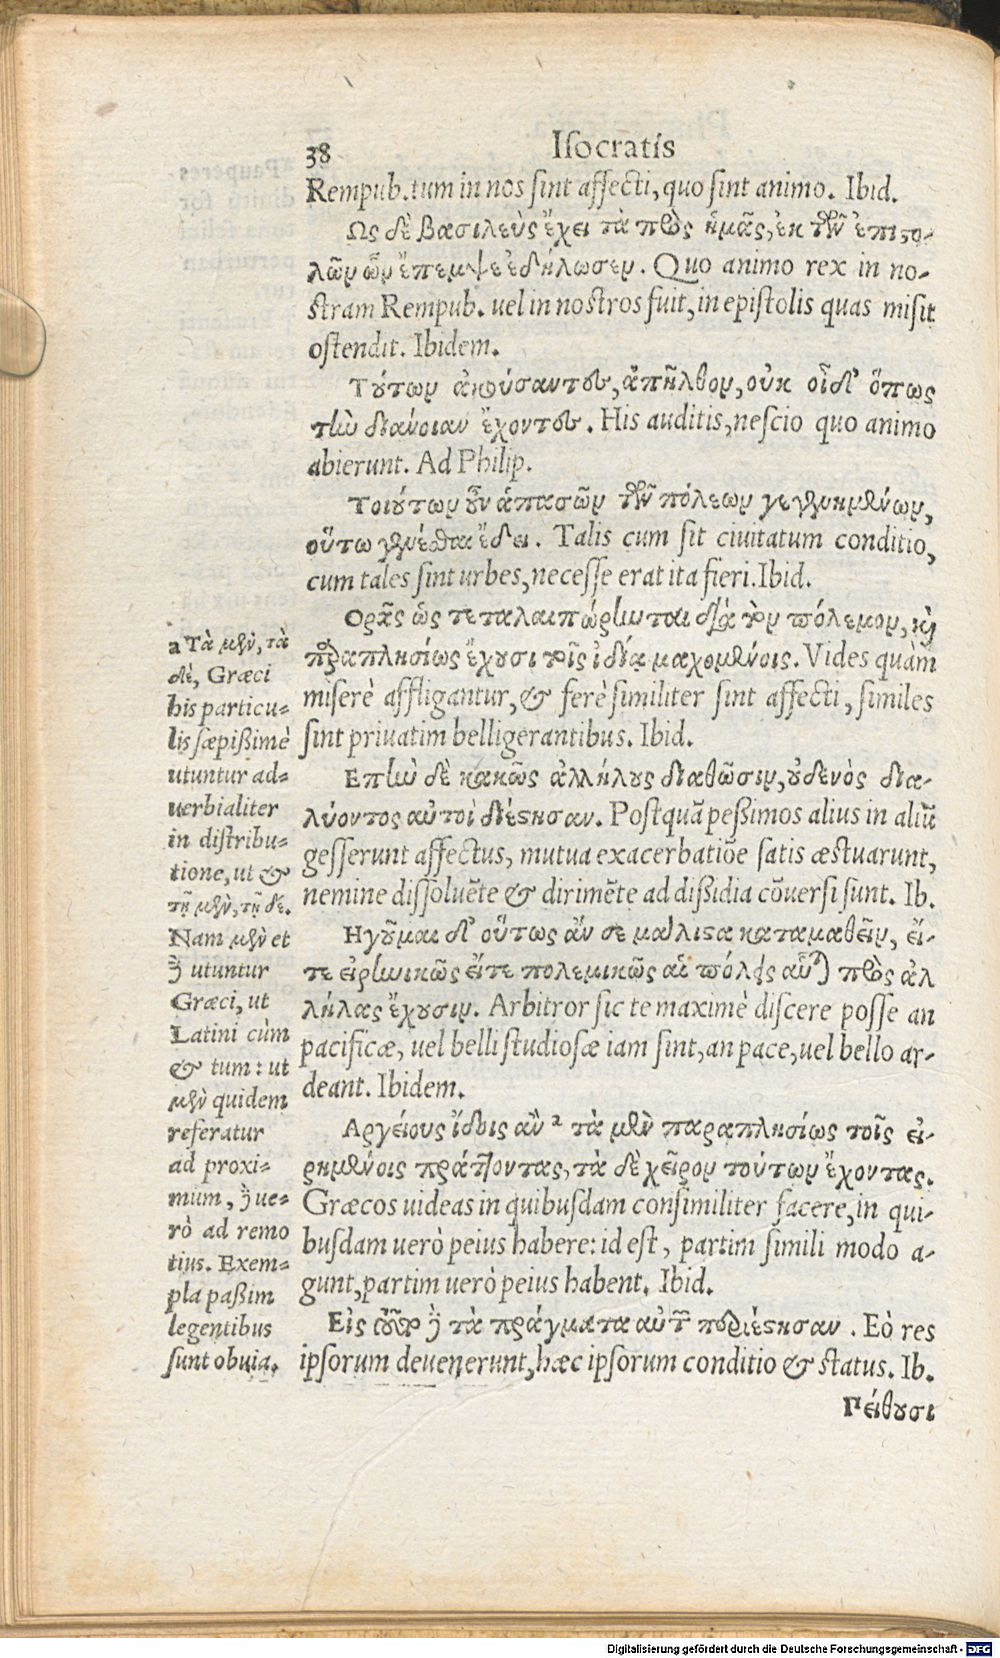 38 Isocratis
Rempub. tum in nos sint affecti, quo sint animo. Ibid.
Ως δὲ βασιλεὺς ἔχει τὰ πρὸς ἡμᾶς, ἐκ τῶν ἐπιϛο-
λῶν ὧν ἔπεμψε ἐδήλωσεν. Quo animo rex in no-
stram Rempub. uel in nostros fuit, in epistolis quas misit
ostendit. Ibidem.
Τούτων ἀκούσαντες, ἀπῆλθον, οὐκ οἶδ' ὅπως
τὴν διάνοιαν ἔχοντες. His auditis, nescio quo animo
abierunt. Ad Philip.
Τοιούτων οὖν ἁπασῶν τῶν πόλεων γεγενημένων,
οὕτω γενέσθαι ἔδει. Talis cum sit ciuitatum conditio,
cum tales sint urbes, necesse erat ita fieri. Ibid.
Ορᾷς ὡς τεταλαιπώρηνται διὰ τὸν πόλεμον, καὶ
παραπλησίως ἔχουσι τοῖς ἰδίᾳ μαχομένοις. Vides quàm
miserè affligantur, & ferè similiter sint affecti, similes
sint priuatim belligerantibus. Ibid.
Επὴν δὲ κακῶς ἀλλήλους διαθῶσιν, οὐδενὸς δια-
λύοντος αὐτοὶ διέϛησαν. Postquã peßimos alius in aliũ
gesserunt affectus, mutua exacerbatiõe satis æstuarunt,
nemine dissoluẽte & dirimẽte ad dißidia cõuersi sunt. Ib.
Ηγοῦμαι δ' οὕτως ἄν σε μάλιϛα καταμαθεῖν, εἴ-
τε εἰρηνικῶς εἴτε πολεμικῶς αἱ πόλεις αὗται πρὸς ἀλ
λήλας ἔχουσιν. Arbitror sic te maximè discere posse an
pacificæ, uel belli studiosæ iam sint, an pace, uel bello ar-
deant. Ibidem.
Αργείους ἴδοις ἂν a τὰ μὲν παραπλησίως τοῖς εἰ-
ρημένοις πράττοντας, τὰ δὲ χεῖρον τούτων ἔχοντας.
Græcos uideas in quibusdam consimiliter facere, in qui-
busdam uerò peius habere: id est, partim simili modo a-
gunt, partim uerò peius habent. Ibid.
Εἰς τοῦτο δὲ τὰ πράγματα αὐτῶν περιέϛησαν. Eò res
ipsorum deuenerunt, hæc ipsorum conditio & status. Ib.
Πείθουσι
a Τὰ μὲν, τὰ
δὲ, Græci
his particu-
lis sæpißimè
utuntur ad-
uerbialiter
in distribu-
tione, ut &
τῇ μὲν, τῇ δὲ.
Nam μὲν et
δὲ utuntur
Græci, ut
Latini cùm
& tum: ut
μὲν quidem
referatur
ad proxi-
mum, δὲ ue-
rò ad remo
tius. Exem-
pla paßim
legentibus
sunt obuia.
Digitalisierung gefördert durch die Deutsche Forschungsgemeinschaft - DFG